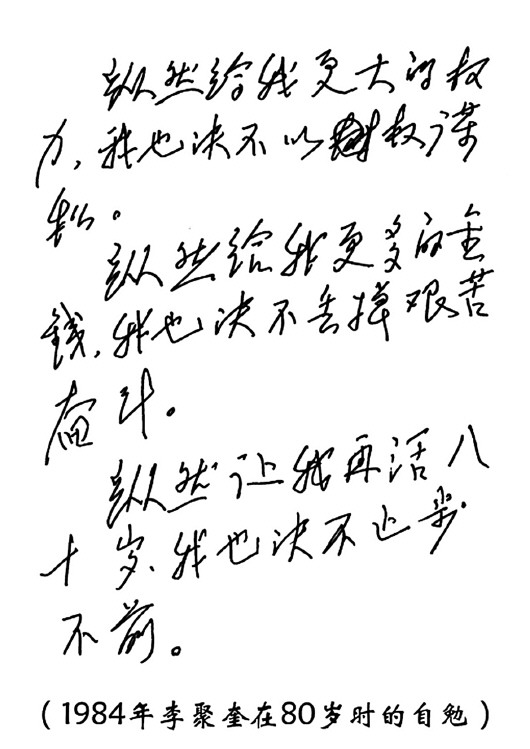 纵然给我更大的权
力，我也决不以权谋
私。
纵然给我更多的金
钱，我也决不丢掉艰苦
奋斗。
纵然让我再活八
十岁、我也决不止步
不前。
（1984年李聚奎在80岁时的自勉）